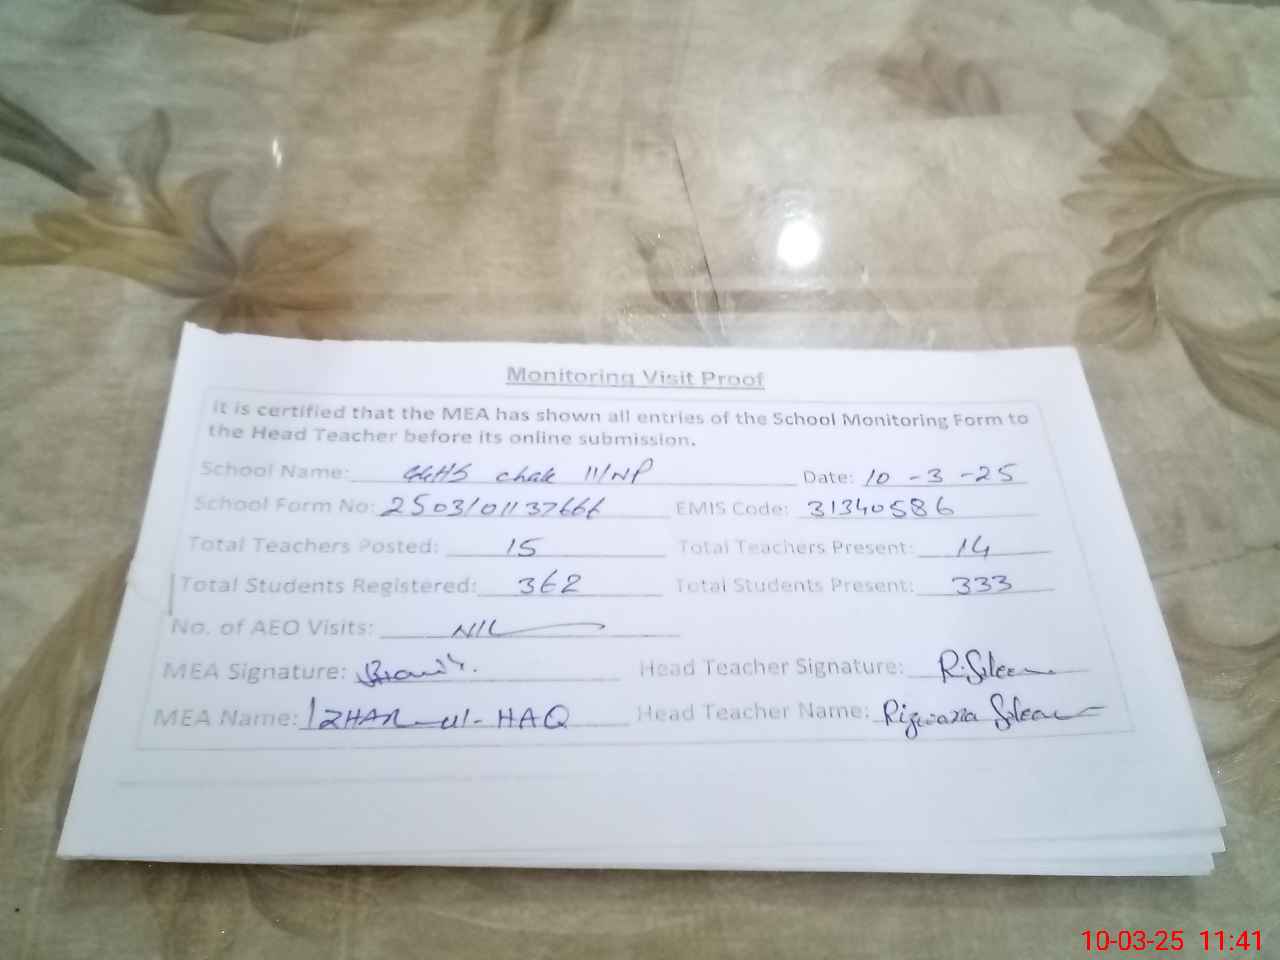 Monitoring Visit Proof
It is certified that the MEA has shown all entries of the School Monitoring Form to
the Head Teacher before its online submission.
School Name: GGHS Chak 11/NP Date: 10-3-25
School Form No: 2503101137666 EMIS Code: 31340586
Total Teachers Posted: 15 Total Teachers Present: 14
Total Students Registered: 362 Total Students Present: 333
No. of AEO Visits: NIL
MEA Signature: Head Teacher Signature:
MEA Name: IZHAR-ul-HAQ Head Teacher Name: Rizwana
10-03-25 11:41